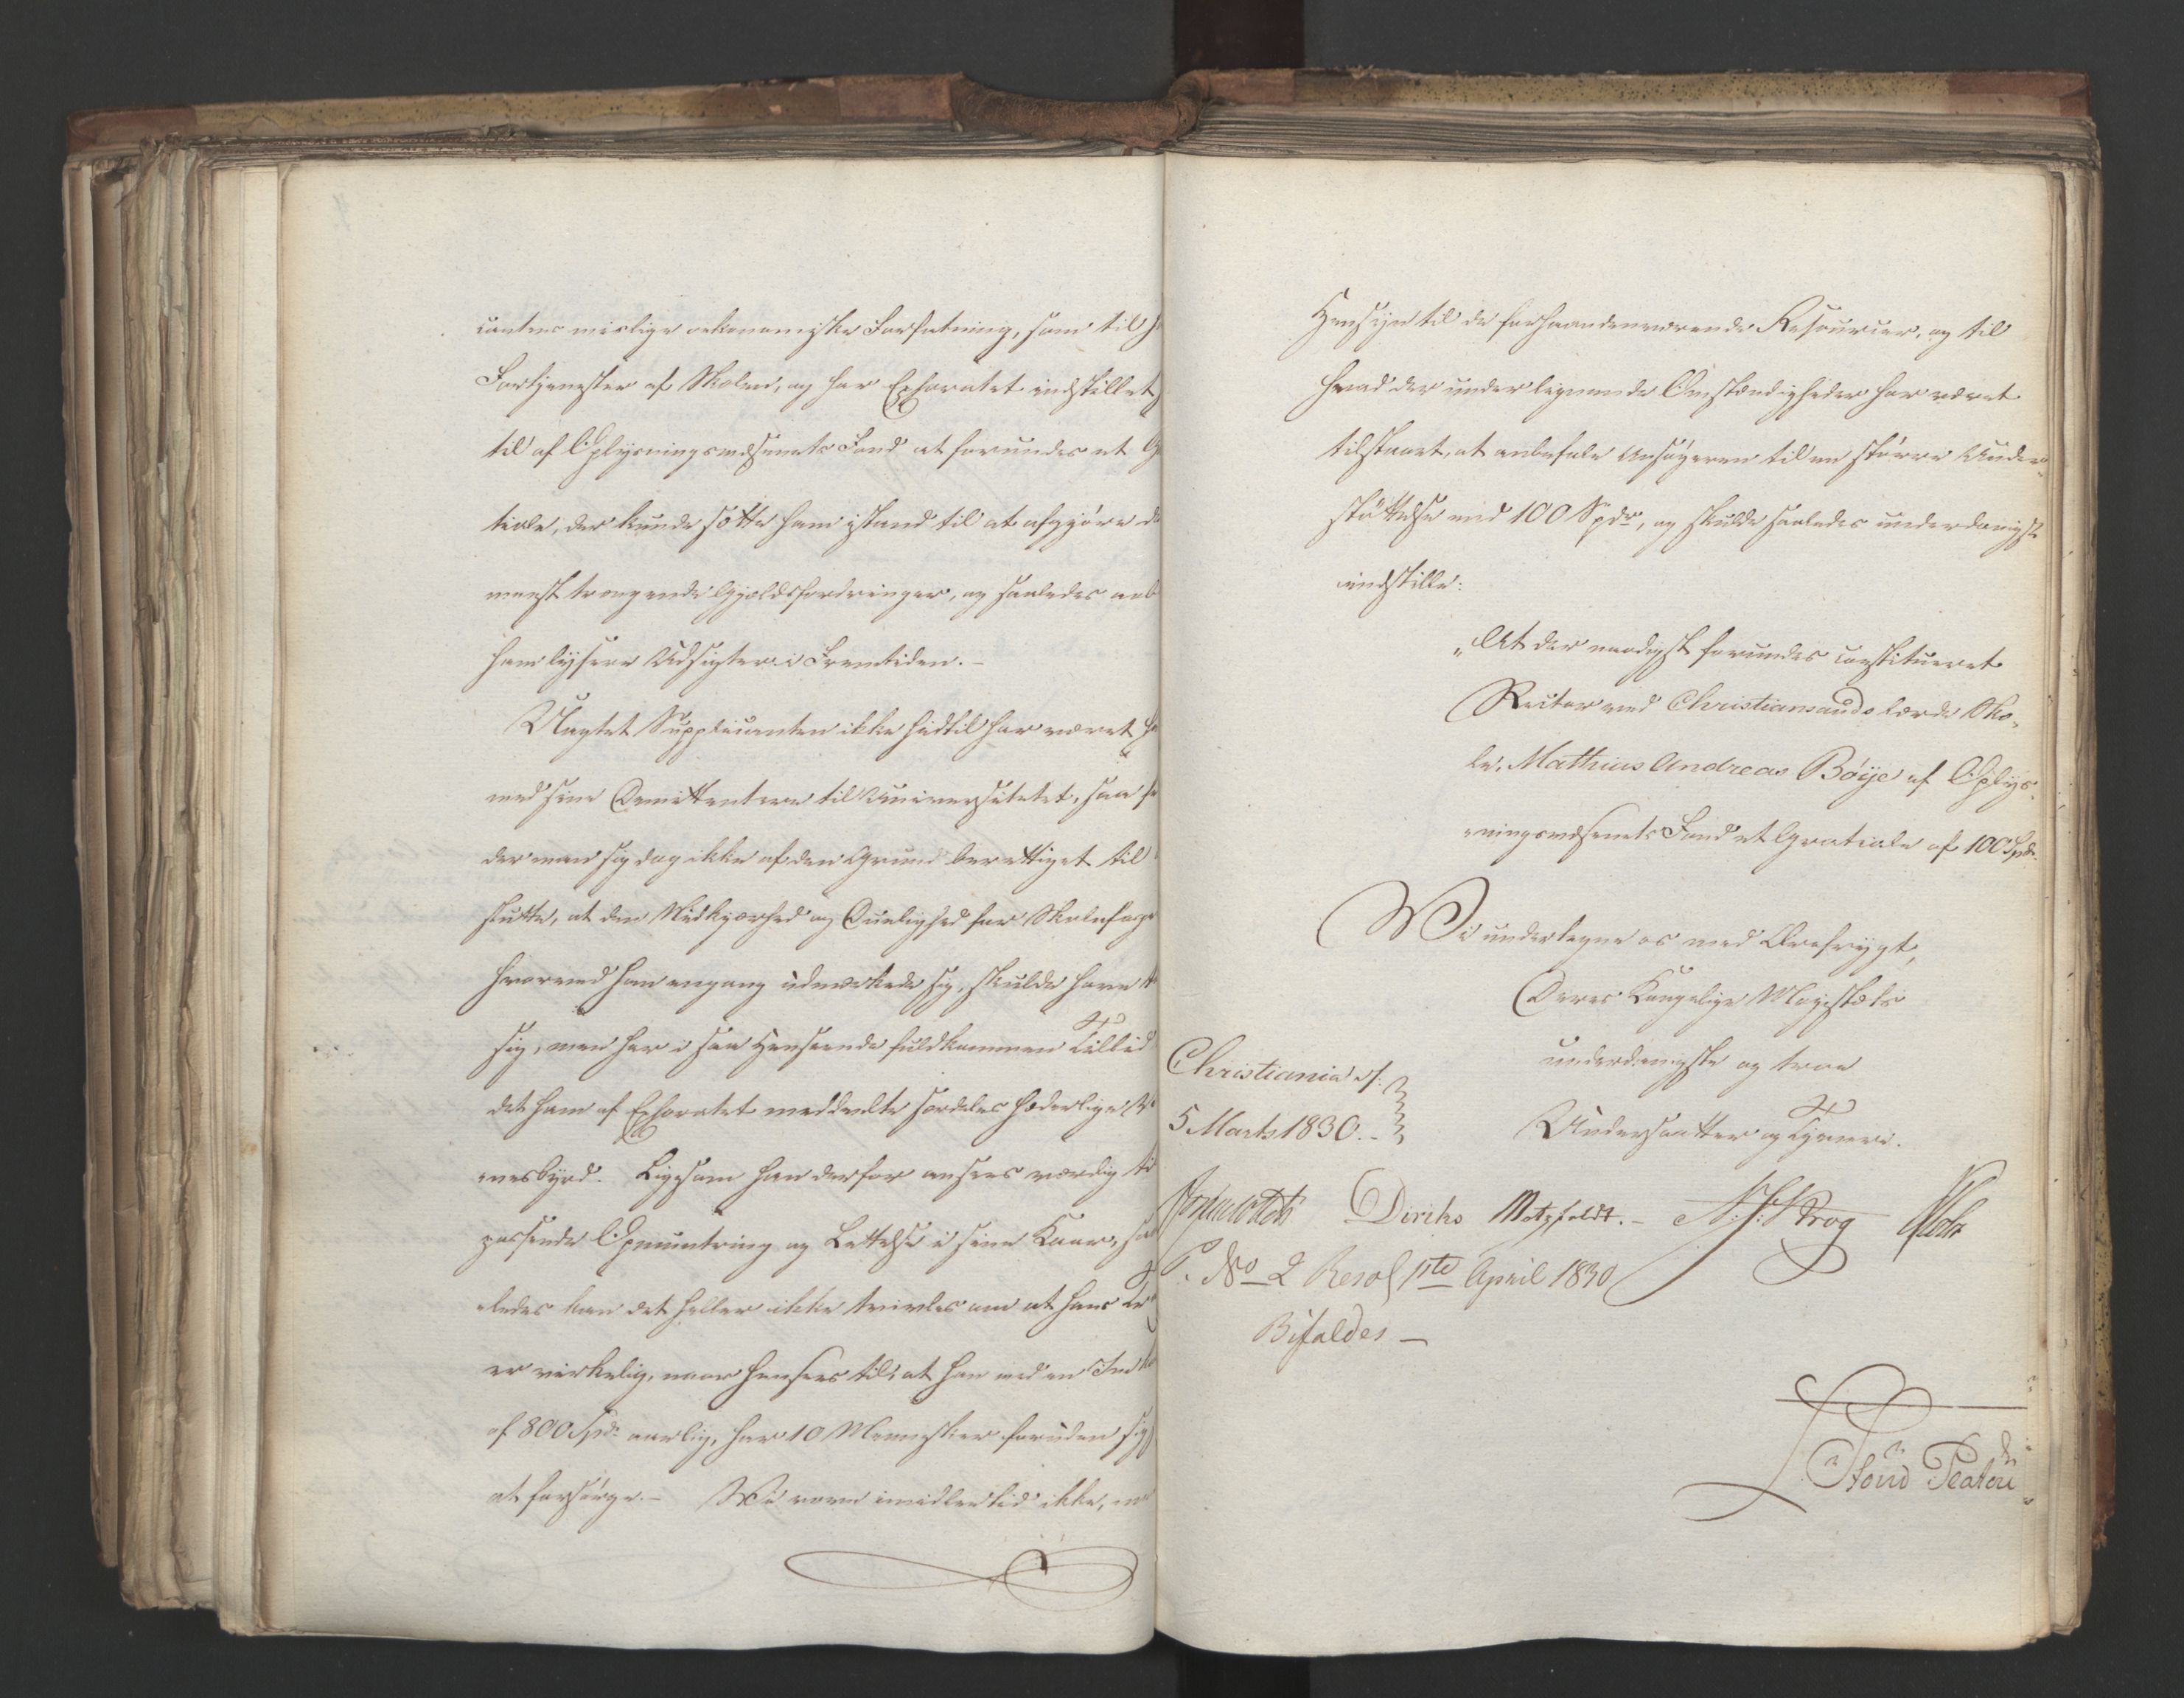 cantens mislige oekonomiske Forfatning, som til
Fortjenester af Skolen, og har Ephoratet indstillet
til af Oplysningsvæsenets Fond at forundes et
tiale, der kunde sætte ham istand til at afgjøre
meest trængende Gjældsfordringer, og saaledes
ham lysere Udsigter i Fremtiden. -
Uagtet Supplicanten ikke hidtil har været
med sine Demittentere til Universitetet, saa
der man sig dog ikke af den Grund berettiget til
slutte, at den Nidkjærhed og Duelighed for Skolefaget
hvormed han engang udmærkede sig, skulde have
sig, men har i saa Henseende fuldkommen Tillid
det ham af Ephoratet meddeelte særdeles hæderlige
nesbyrd. Ligesom han derfor ansees værdig til
passende Opmuntring og Lettelse i sine Kaar,
ledes kan det heller ikke tvivles om at hans
er virkelig, naar hensees til, at han med en
af 800 Spdr aarlig, har 10 Mennesker foruden sig
at forsørge. - Vi vove imidlertid ikke,
Hensyn til de forhaandenværende Resourcer, og til
hvad der under lignende Omstændigheder har været
tilstaaet, at anbefale Ansøgeren til en større Under-
støttelse end 100 Spdr, og skulde saaledes underdanigst
indstille:
"At der naadigst forundes constitueret
Rector ved Christiansands lærde Sko-
le, Mathias Andreas Böije af Oplys-
ningsvæsenets Fond et Gratiale af 100 Spdr.
Vi undertegne os med Ærefrygt,
Deres Kongelige Majestæts
underdanigste og troe
Undersaatter og Tjenere.
Christiania d:
5 Marts 1830. -
Diriks Motzfeldt. - Krog
P. No 2 Resol 1ste April 1830
Bifaldes -